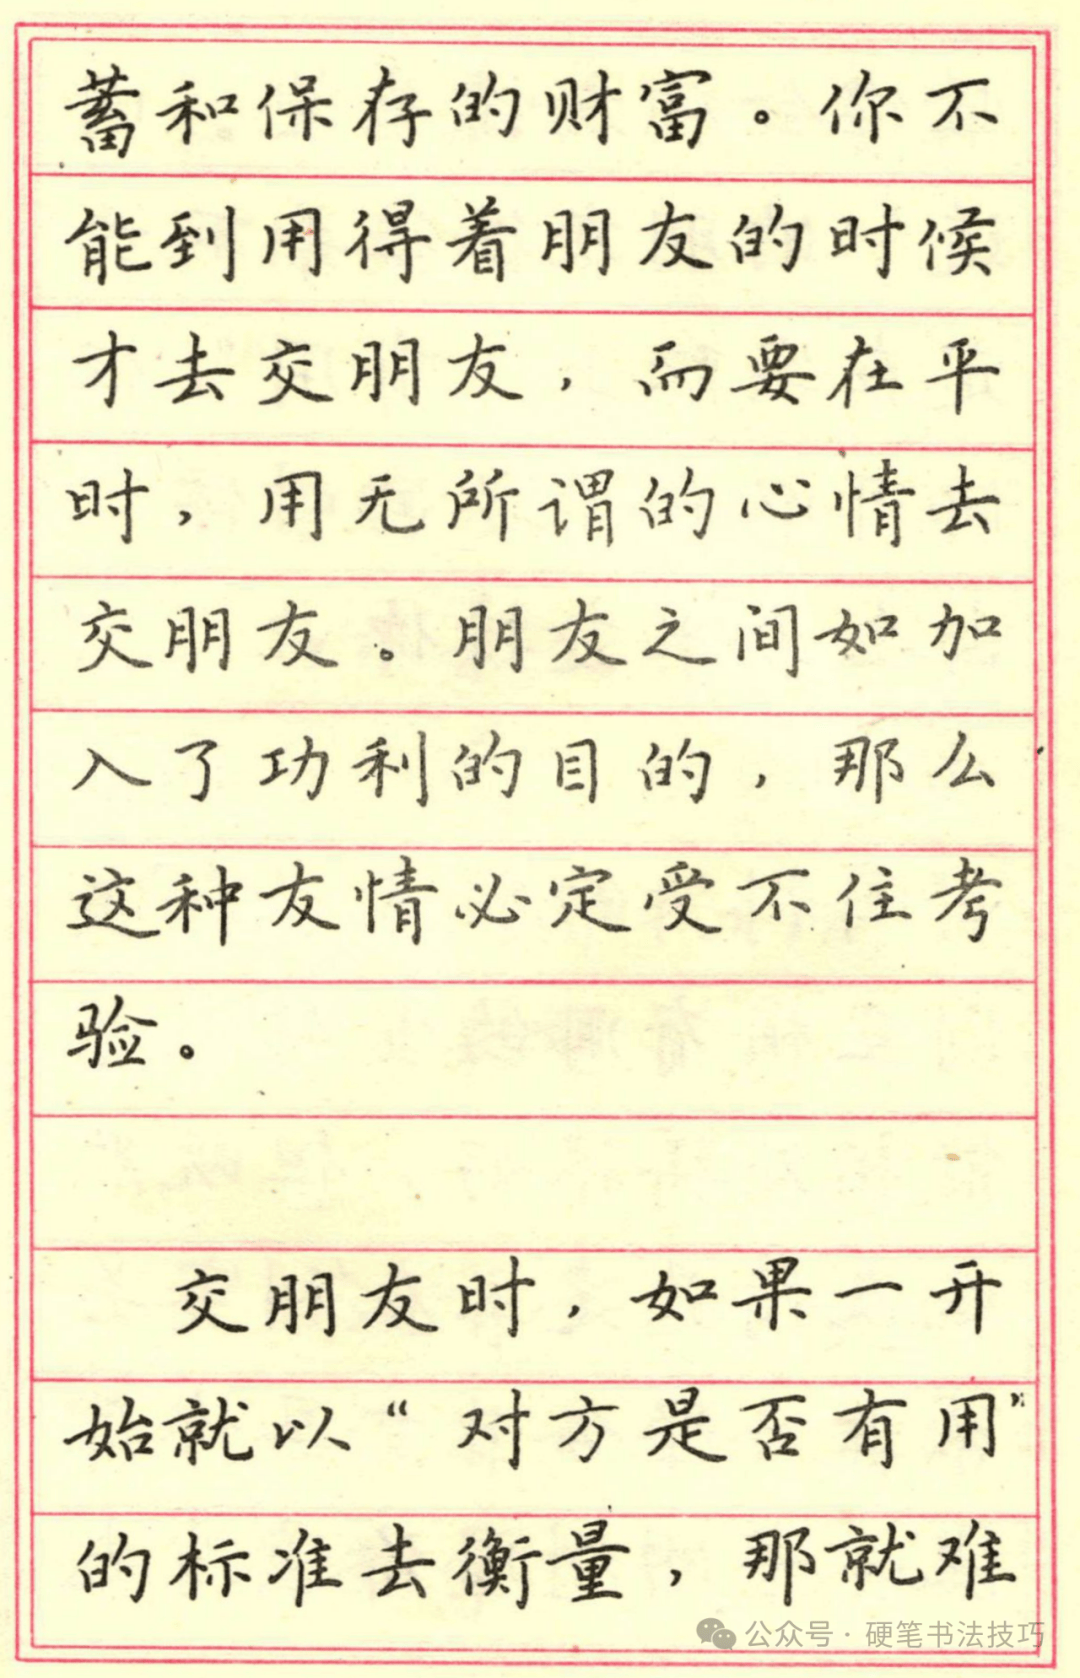 蓄和保存的财富。你不
能到用得着朋友的时候
才去交朋友，而要在平
时，用无所谓的心情去
交朋友。朋友之间如加
入了功利的目的，那么
这种友情必定受不住考
验。
交朋友时，如果一开
始就以“对方是否有用”
的标准去衡量，那就难
公众号·硬笔书法技巧